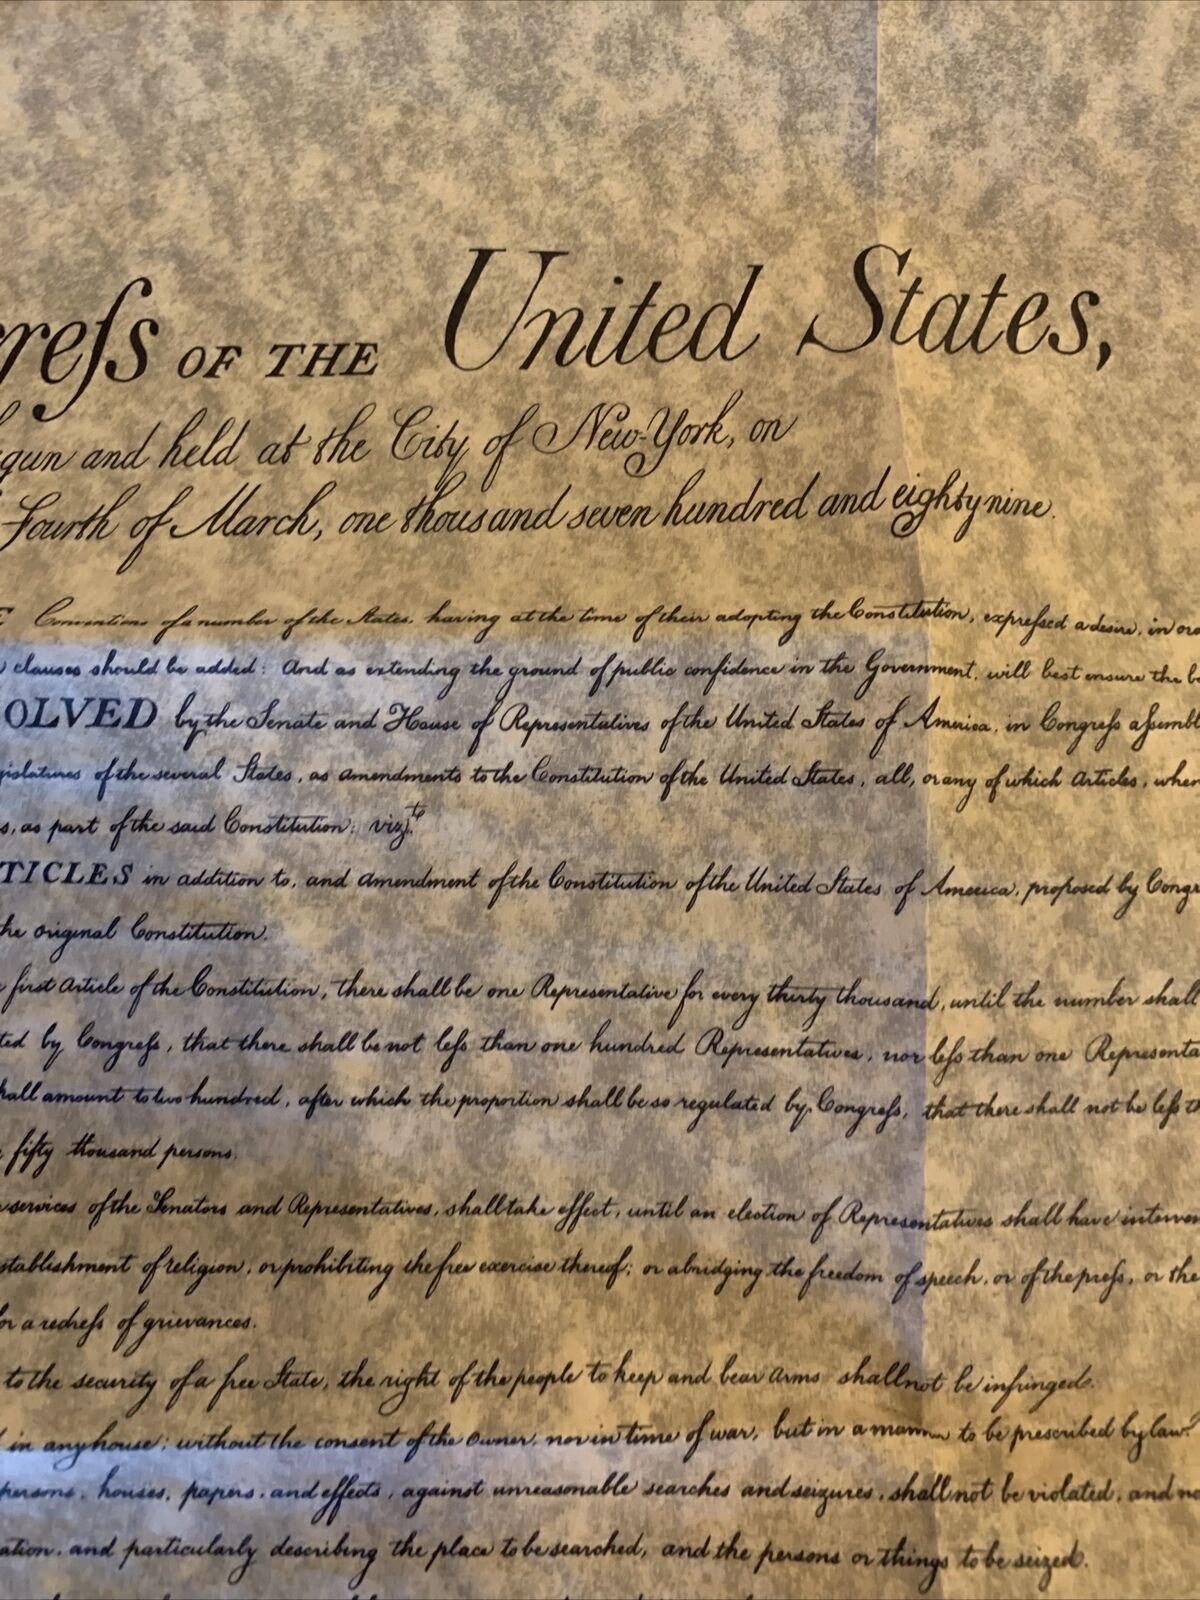 greſs OF THE United States,
gun and held at the City of New-York, on
Fourth of March, one thousand seven hundred and eighty nine.
Conventions of a number of the States, having at the time of their adopting the Constitution, expreſsed a desire, in or
clauses should be added: And as extending the ground of public confidence in the Government, will best ensure the b
OLVED by the Senate and House of Representatives of the United States of America, in Congreſs aſsembl
gislatures of the several States, as amendments to the Constitution of the United States, all, or any of which Articles, when
s, as part of the said Constitution; vizt
TICLES in addition to, and amendment of the Constitution of the United States of America, proposed by Congr
he original Constitution.
first Article of the Constitution, there shall be one Representative for every thirty thousand, until the number shall
ted by Congreſs, that there shall be not leſs than one hundred Representatives, nor leſs than one Representa
hall amount to two hundred, after which the proportion shall be so regulated by Congreſs, that there shall not be leſs th
fifty thousand persons.
services of the Senators and Representatives, shall take effect, until an election of Representatives shall have interven
stablishment of religion, or prohibiting the free exercise thereof; or abridging the freedom of speech, or of the preſs, or the
or a redreſs of grievances.
to the security of a free State, the right of the people to keep and bear arms shall not be infringed.
in any house; without the consent of the owner, nor in time of war, but in a manner to be prescribed by law.
persons, houses, papers, and effects, against unreasonable searches and seizures, shall not be violated, and no
ation, and particularly describing the place to be searched, and the persons or things to be seized.